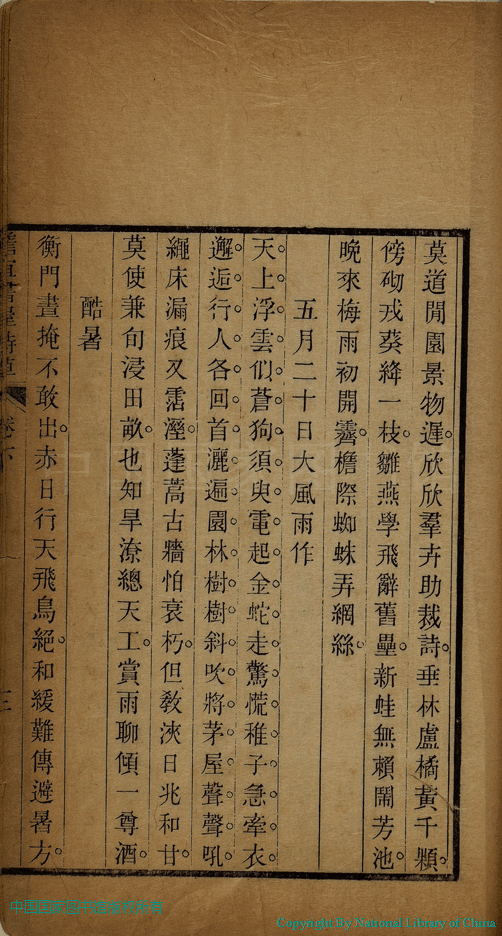 莫道閒園景物遲。欣欣羣卉助裁詩。垂林盧橘黃千顆。
傍砌戎葵絳一枝。雛燕學飛辭舊壘。新蛙無賴鬧芳池。
晚來梅雨初開霽。檐際蜘蛛弄網絲。
五月二十日大風雨作
天上浮雲似蒼狗。須臾電起金蛇走。驚慌稚子急牽衣。
邂逅行人各回首。灑遍園林樹樹斜。吹將茅屋聲聲吼。
繩床漏痕又霑溼。蓬蒿古牆怕衰朽。但敎浹日兆和甘。
莫使兼旬浸田畝。也知旱潦總天工。賞雨聊傾一尊酒。
酷暑
衡門晝掩不敢出。赤日行天飛鳥絕。和緩難傳避暑方。
卷下
Copyright By National Library of China